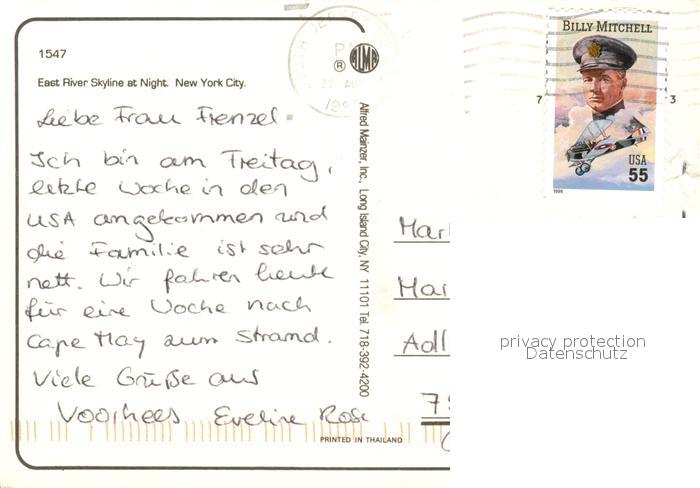 1547
East River Skyline at Night. New York City.
Liebe Frau Frenzel
Ich bin am Freitag,
letzte Woche in den
USA angekommen und
die Familie ist sehr
nett. Wir fahren heute
für eine Woche nach
Cape May zum Strand.
Viele Grüße aus
Voorhees Eveline Rose
Alfred Mainzer, Inc., Long Island City, NY 11101 Tel. 718-392-4200
PRINTED IN THAILAND
BILLY MITCHELL
USA
55
1999
7
3
Mar
Adl
privacy protection
Datenschutz